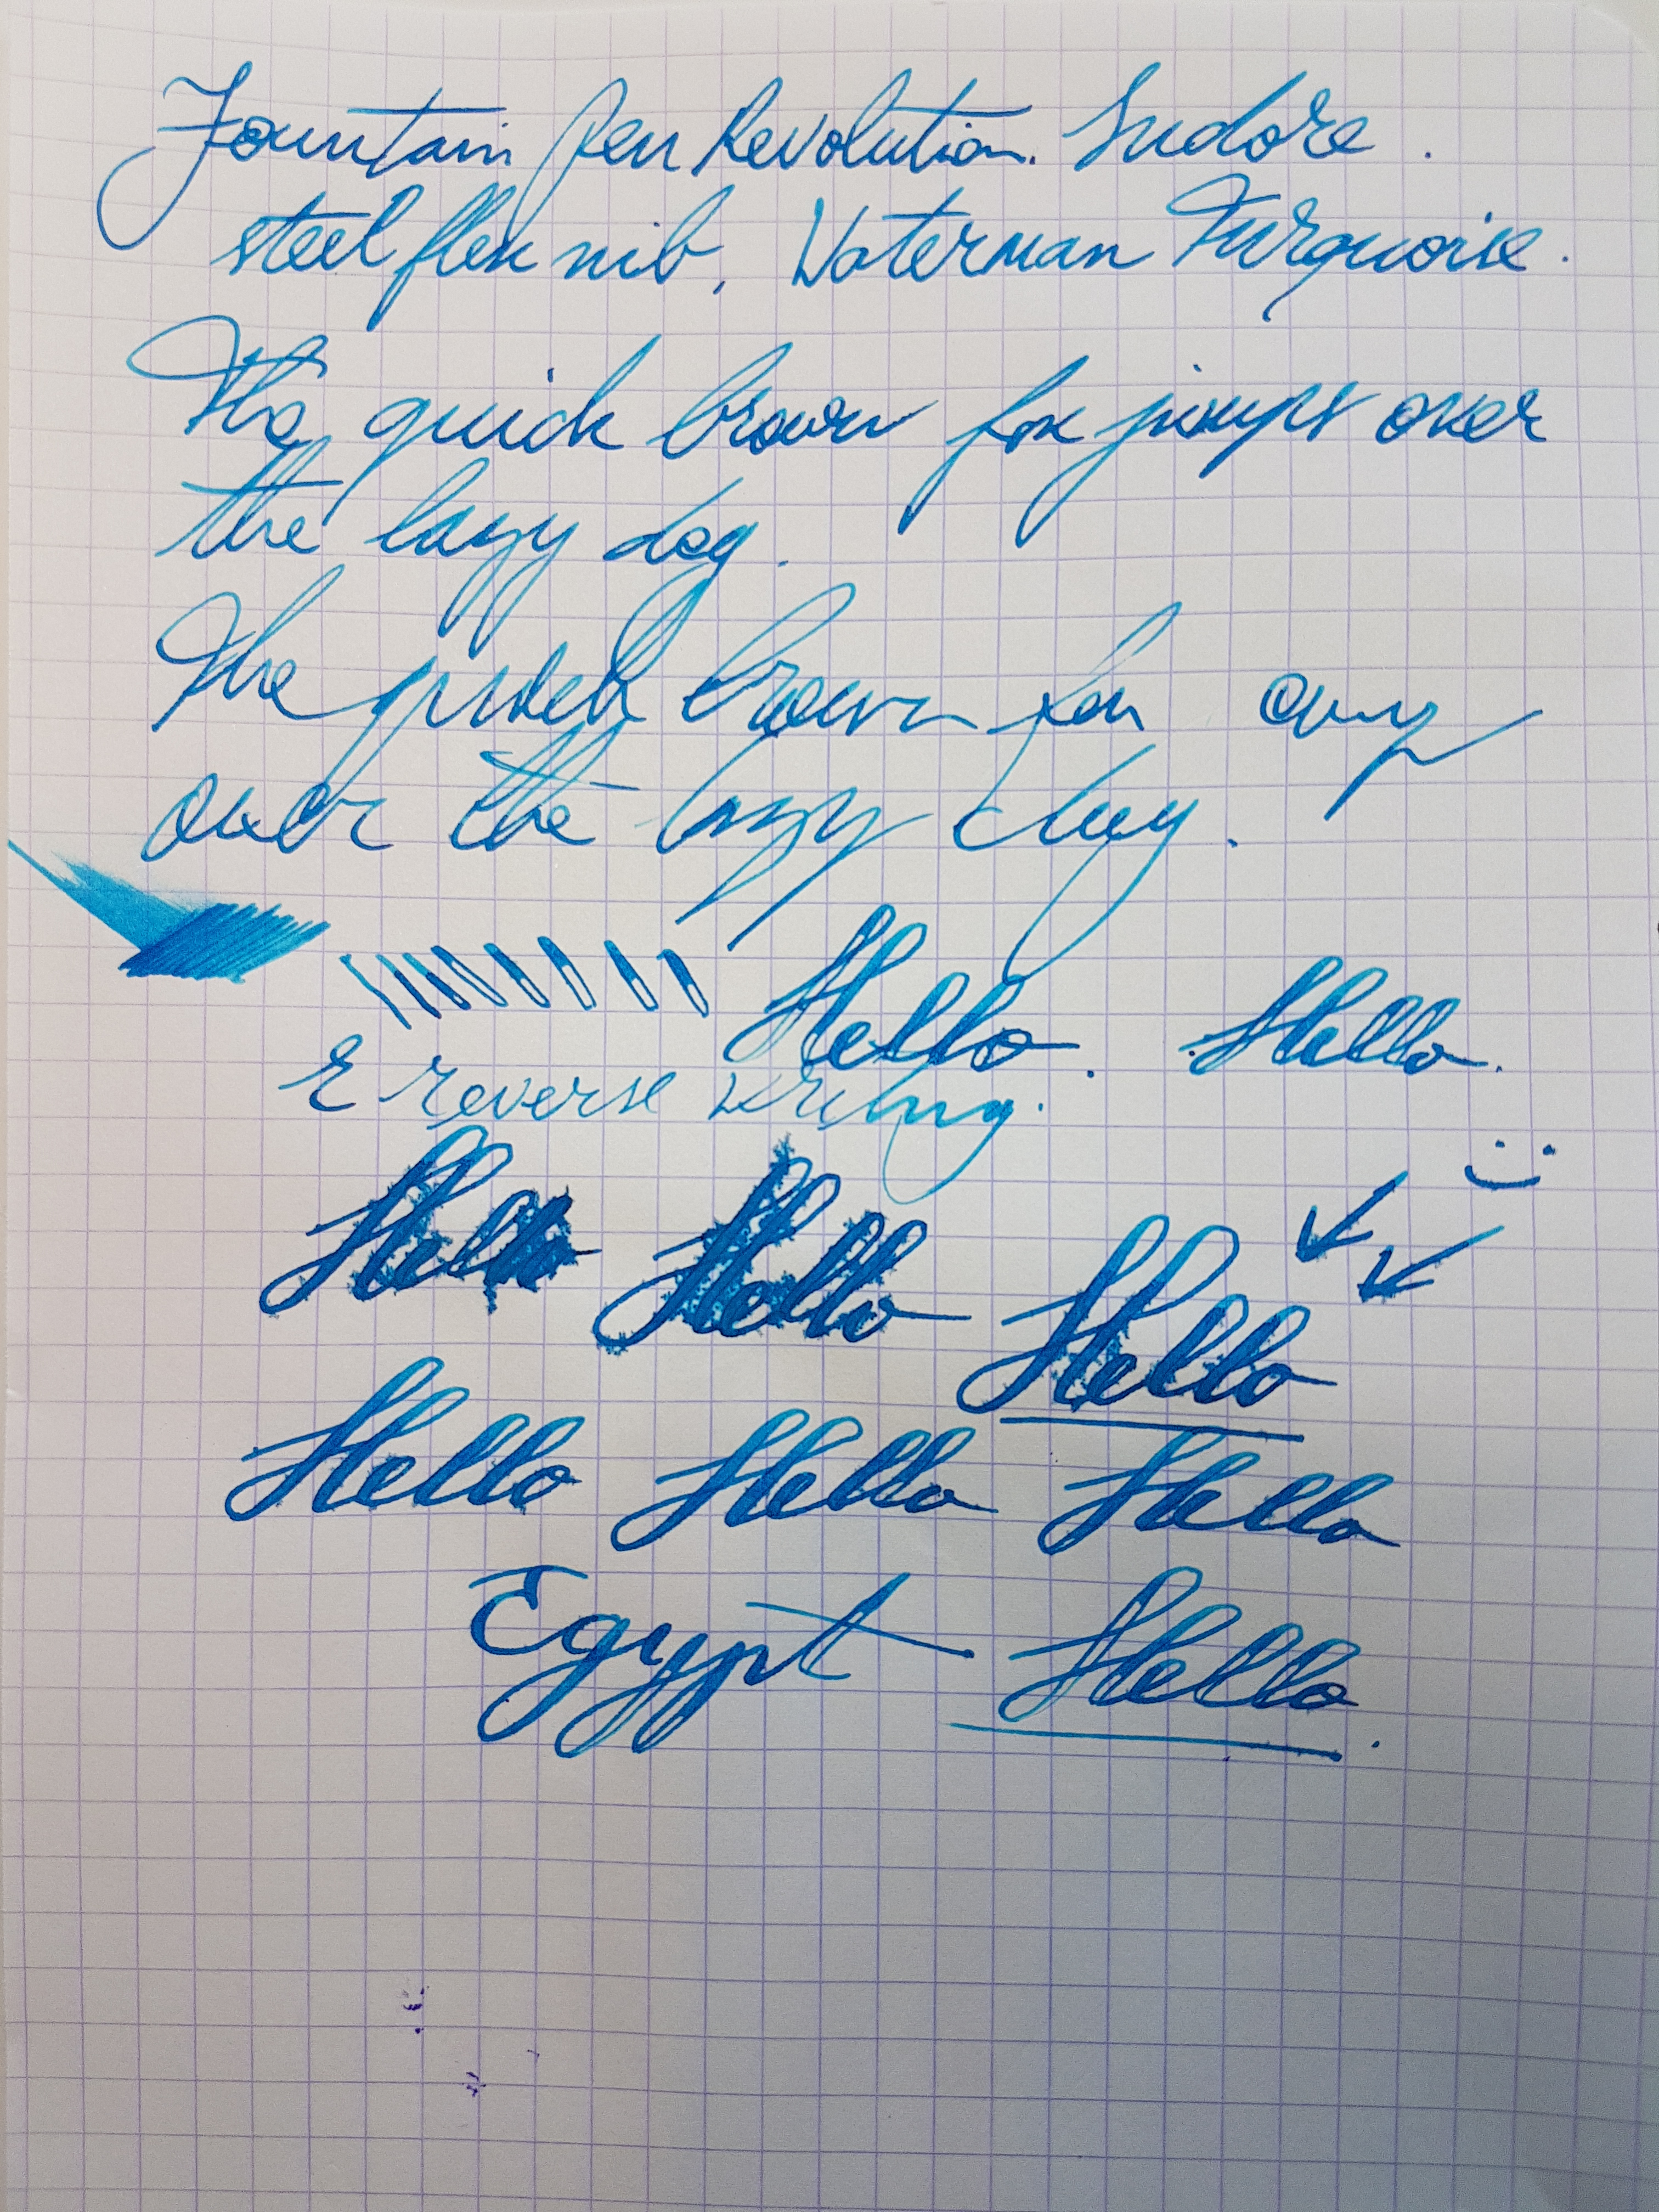 Fountain Pen Revolution. Indore.
steel flex nib, Waterman Turquoise.
The quick brown fox jumps over
the lazy dog.
The quick brown fox
over the lazy dog.
Hello. Hello.
reverse writing.
Hello Hello Hello
Hello Hello Hello
Egypt Hello.